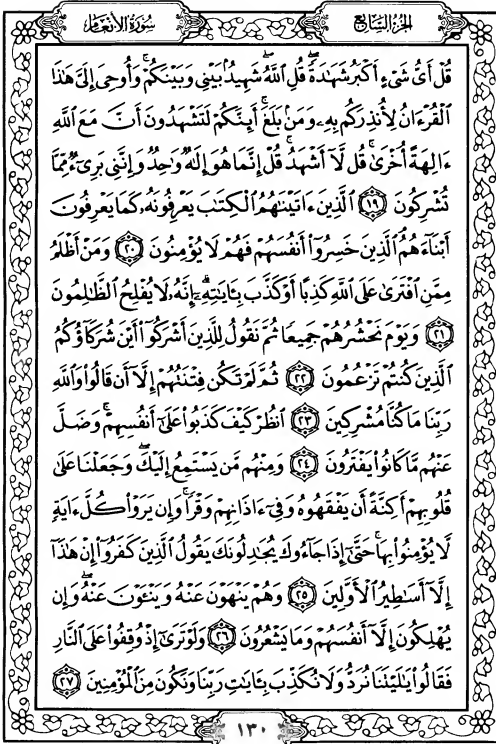 الجزء السابع
سورة الأنعام
قُلْ أَىُّ شَىْءٍ أَكْبَرُ شَهَٰدَةً ۖ قُلِ ٱللَّهُ ۖ شَهِيدٌۢ بَيْنِى وَبَيْنَكُمْ ۚ وَأُوحِىَ إِلَىَّ هَٰذَا
ٱلْقُرْءَانُ لِأُنذِرَكُم بِهِۦ وَمَنۢ بَلَغَ ۚ أَئِنَّكُمْ لَتَشْهَدُونَ أَنَّ مَعَ ٱللَّهِ
ءَالِهَةً أُخْرَىٰ ۚ قُل لَّآ أَشْهَدُ ۚ قُلْ إِنَّمَا هُوَ إِلَٰهٌ وَٰحِدٌ وَإِنَّنِى بَرِىٓءٌ مِّمَّا
تُشْرِكُونَ ﴿١٩﴾ ٱلَّذِينَ ءَاتَيْنَٰهُمُ ٱلْكِتَٰبَ يَعْرِفُونَهُۥ كَمَا يَعْرِفُونَ
أَبْنَآءَهُمُ ٱلَّذِينَ خَسِرُوٓا۟ أَنفُسَهُمْ فَهُمْ لَا يُؤْمِنُونَ ﴿٢٠﴾ وَمَنْ أَظْلَمُ
مِمَّنِ ٱفْتَرَىٰ عَلَى ٱللَّهِ كَذِبًا أَوْ كَذَّبَ بِـَٔايَٰتِهِۦٓ ۗ إِنَّهُۥ لَا يُفْلِحُ ٱلظَّٰلِمُونَ
﴿٢١﴾ وَيَوْمَ نَحْشُرُهُمْ جَمِيعًا ثُمَّ نَقُولُ لِلَّذِينَ أَشْرَكُوٓا۟ أَيْنَ شُرَكَآؤُكُمُ
ٱلَّذِينَ كُنتُمْ تَزْعُمُونَ ﴿٢٢﴾ ثُمَّ لَمْ تَكُن فِتْنَتُهُمْ إِلَّآ أَن قَالُوا۟ وَٱللَّهِ
رَبِّنَا مَا كُنَّا مُشْرِكِينَ ﴿٢٣﴾ ٱنظُرْ كَيْفَ كَذَبُوا۟ عَلَىٰٓ أَنفُسِهِمْ ۚ وَضَلَّ
عَنْهُم مَّا كَانُوا۟ يَفْتَرُونَ ﴿٢٤﴾ وَمِنْهُم مَّن يَسْتَمِعُ إِلَيْكَ ۖ وَجَعَلْنَا عَلَىٰ
قُلُوبِهِمْ أَكِنَّةً أَن يَفْقَهُوهُ وَفِىٓ ءَاذَانِهِمْ وَقْرًا ۚ وَإِن يَرَوْا۟ كُلَّ ءَايَةٍ
لَّا يُؤْمِنُوا۟ بِهَا ۚ حَتَّىٰٓ إِذَا جَآءُوكَ يُجَٰدِلُونَكَ يَقُولُ ٱلَّذِينَ كَفَرُوٓا۟ إِنْ هَٰذَآ
إِلَّآ أَسَٰطِيرُ ٱلْأَوَّلِينَ ﴿٢٥﴾ وَهُمْ يَنْهَوْنَ عَنْهُ وَيَنْـَٔوْنَ عَنْهُ ۖ وَإِن
يُهْلِكُونَ إِلَّآ أَنفُسَهُمْ وَمَا يَشْعُرُونَ ﴿٢٦﴾ وَلَوْ تَرَىٰٓ إِذْ وُقِفُوا۟ عَلَى ٱلنَّارِ
فَقَالُوا۟ يَٰلَيْتَنَا نُرَدُّ وَلَا نُكَذِّبَ بِـَٔايَٰتِ رَبِّنَا وَنَكُونَ مِنَ ٱلْمُؤْمِنِينَ ﴿٢٧﴾
١٣٠